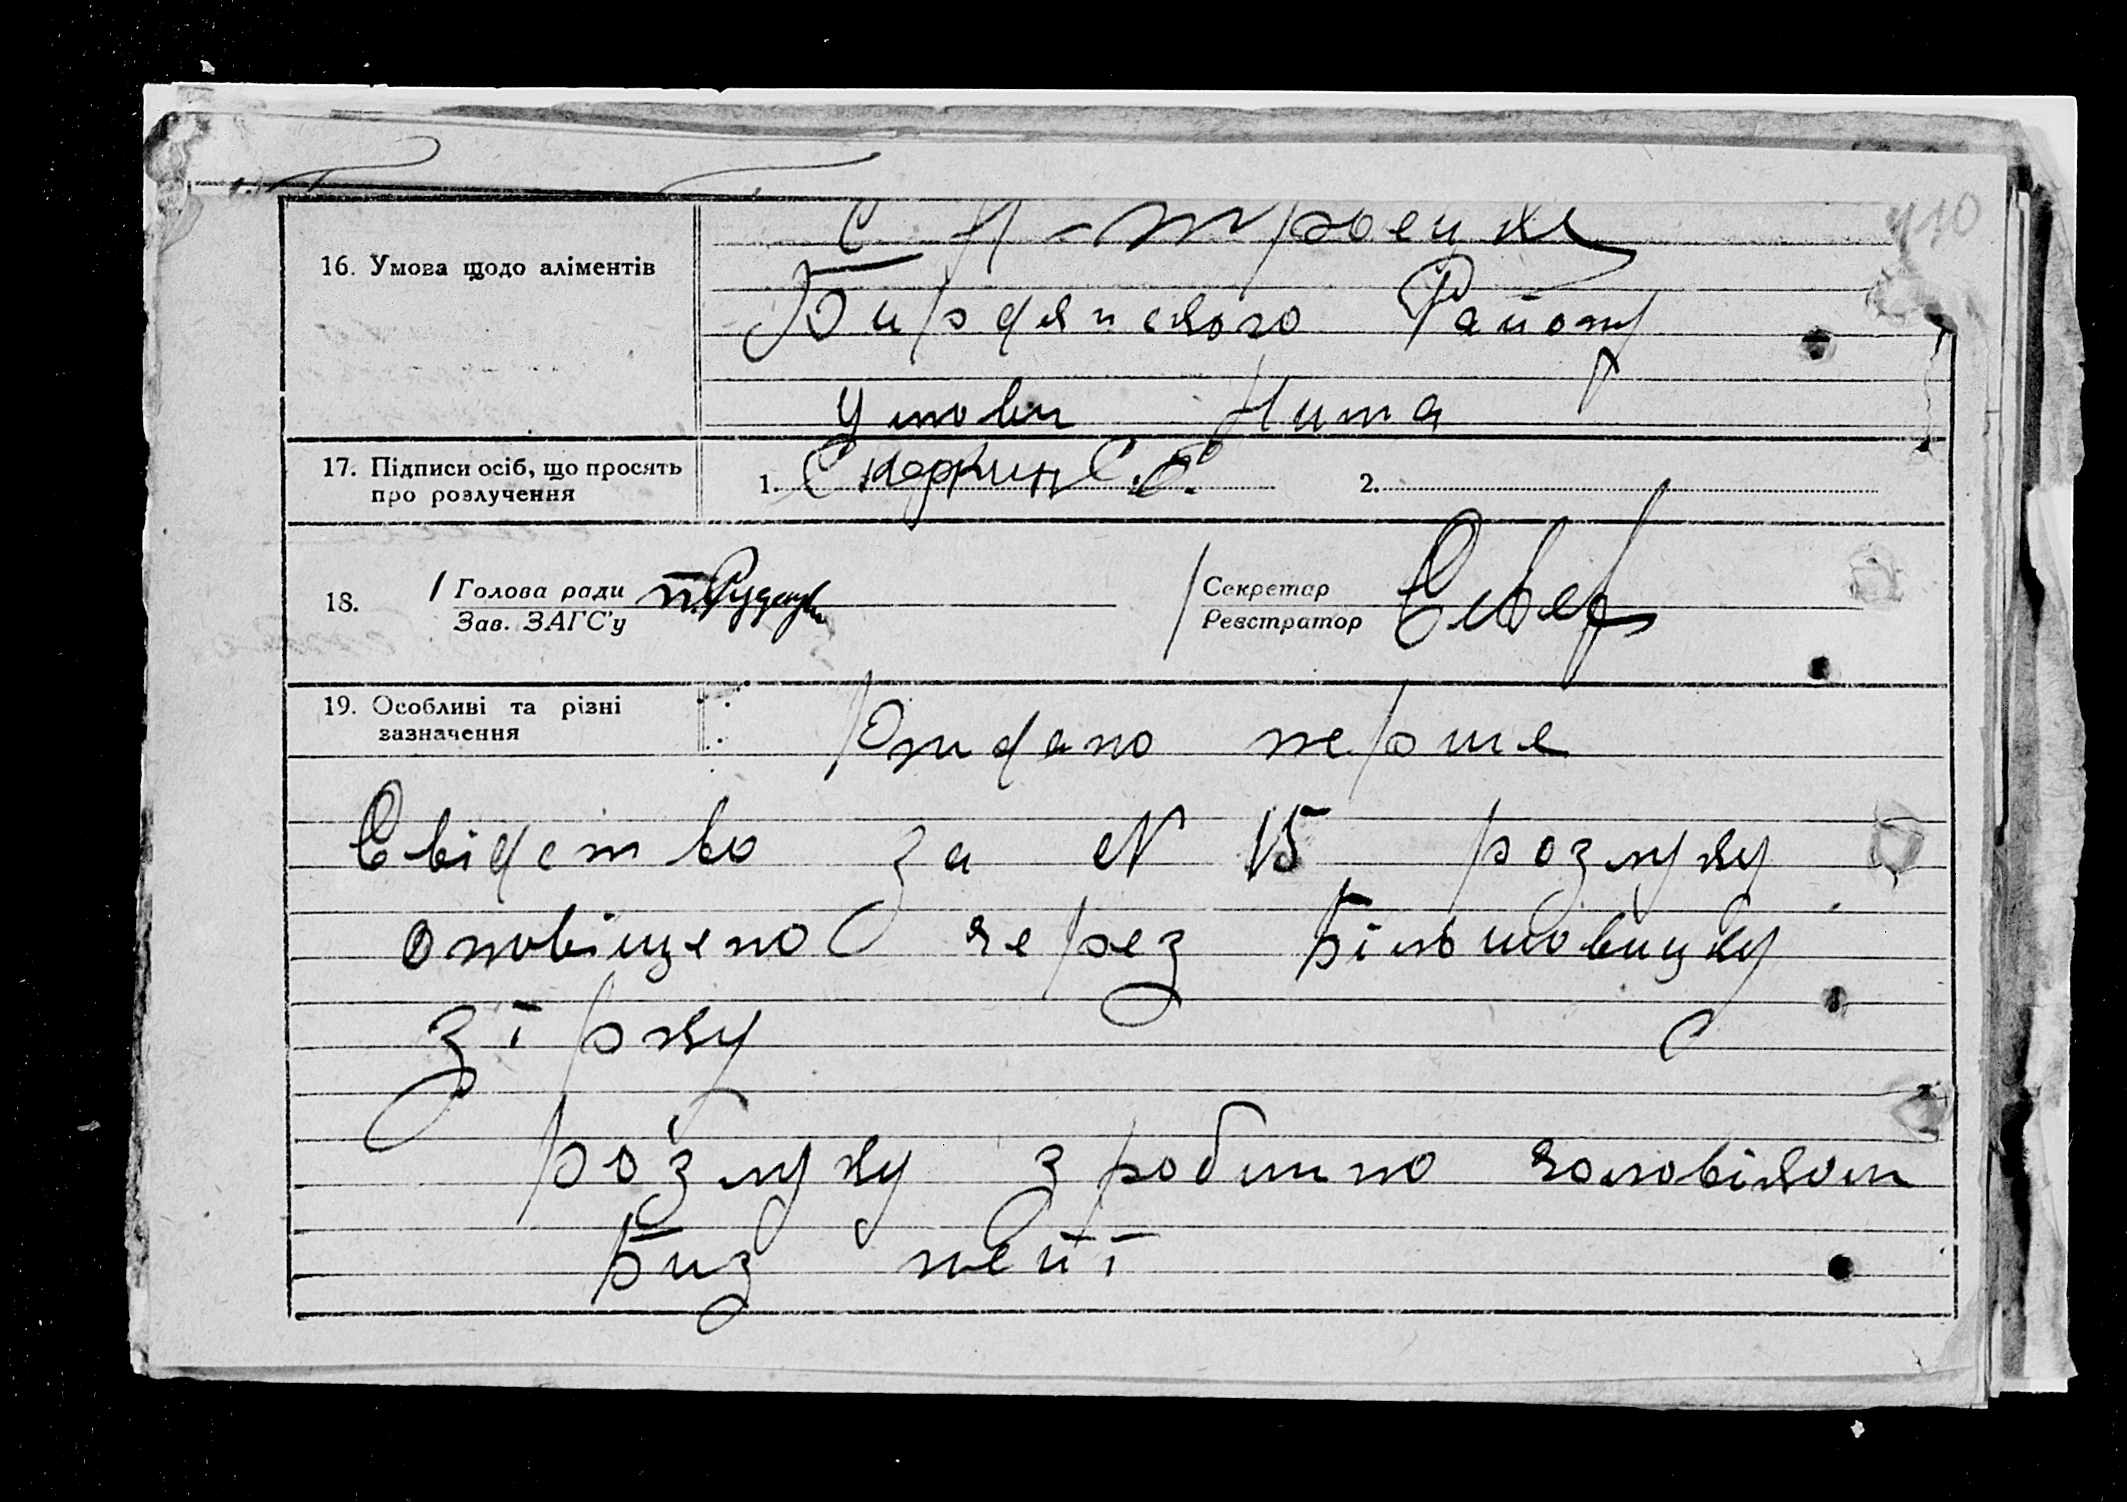 410
с Н-троецке
16. Умова щодо аліментів
Бирдянского Району
умови Нима
17. Підписи осіб, що просять
про розлучення
1. С.С.
2.
18. Голова ради
Зав. ЗАГС'у
Секретар
Реєстратор
19. Особливі та різні
зазначення
Видано перше
Свідетво за № 15 розлуку
оповіщено через Більшовицку
зірку
розлуку зроблино чоловіком
Биз неїї